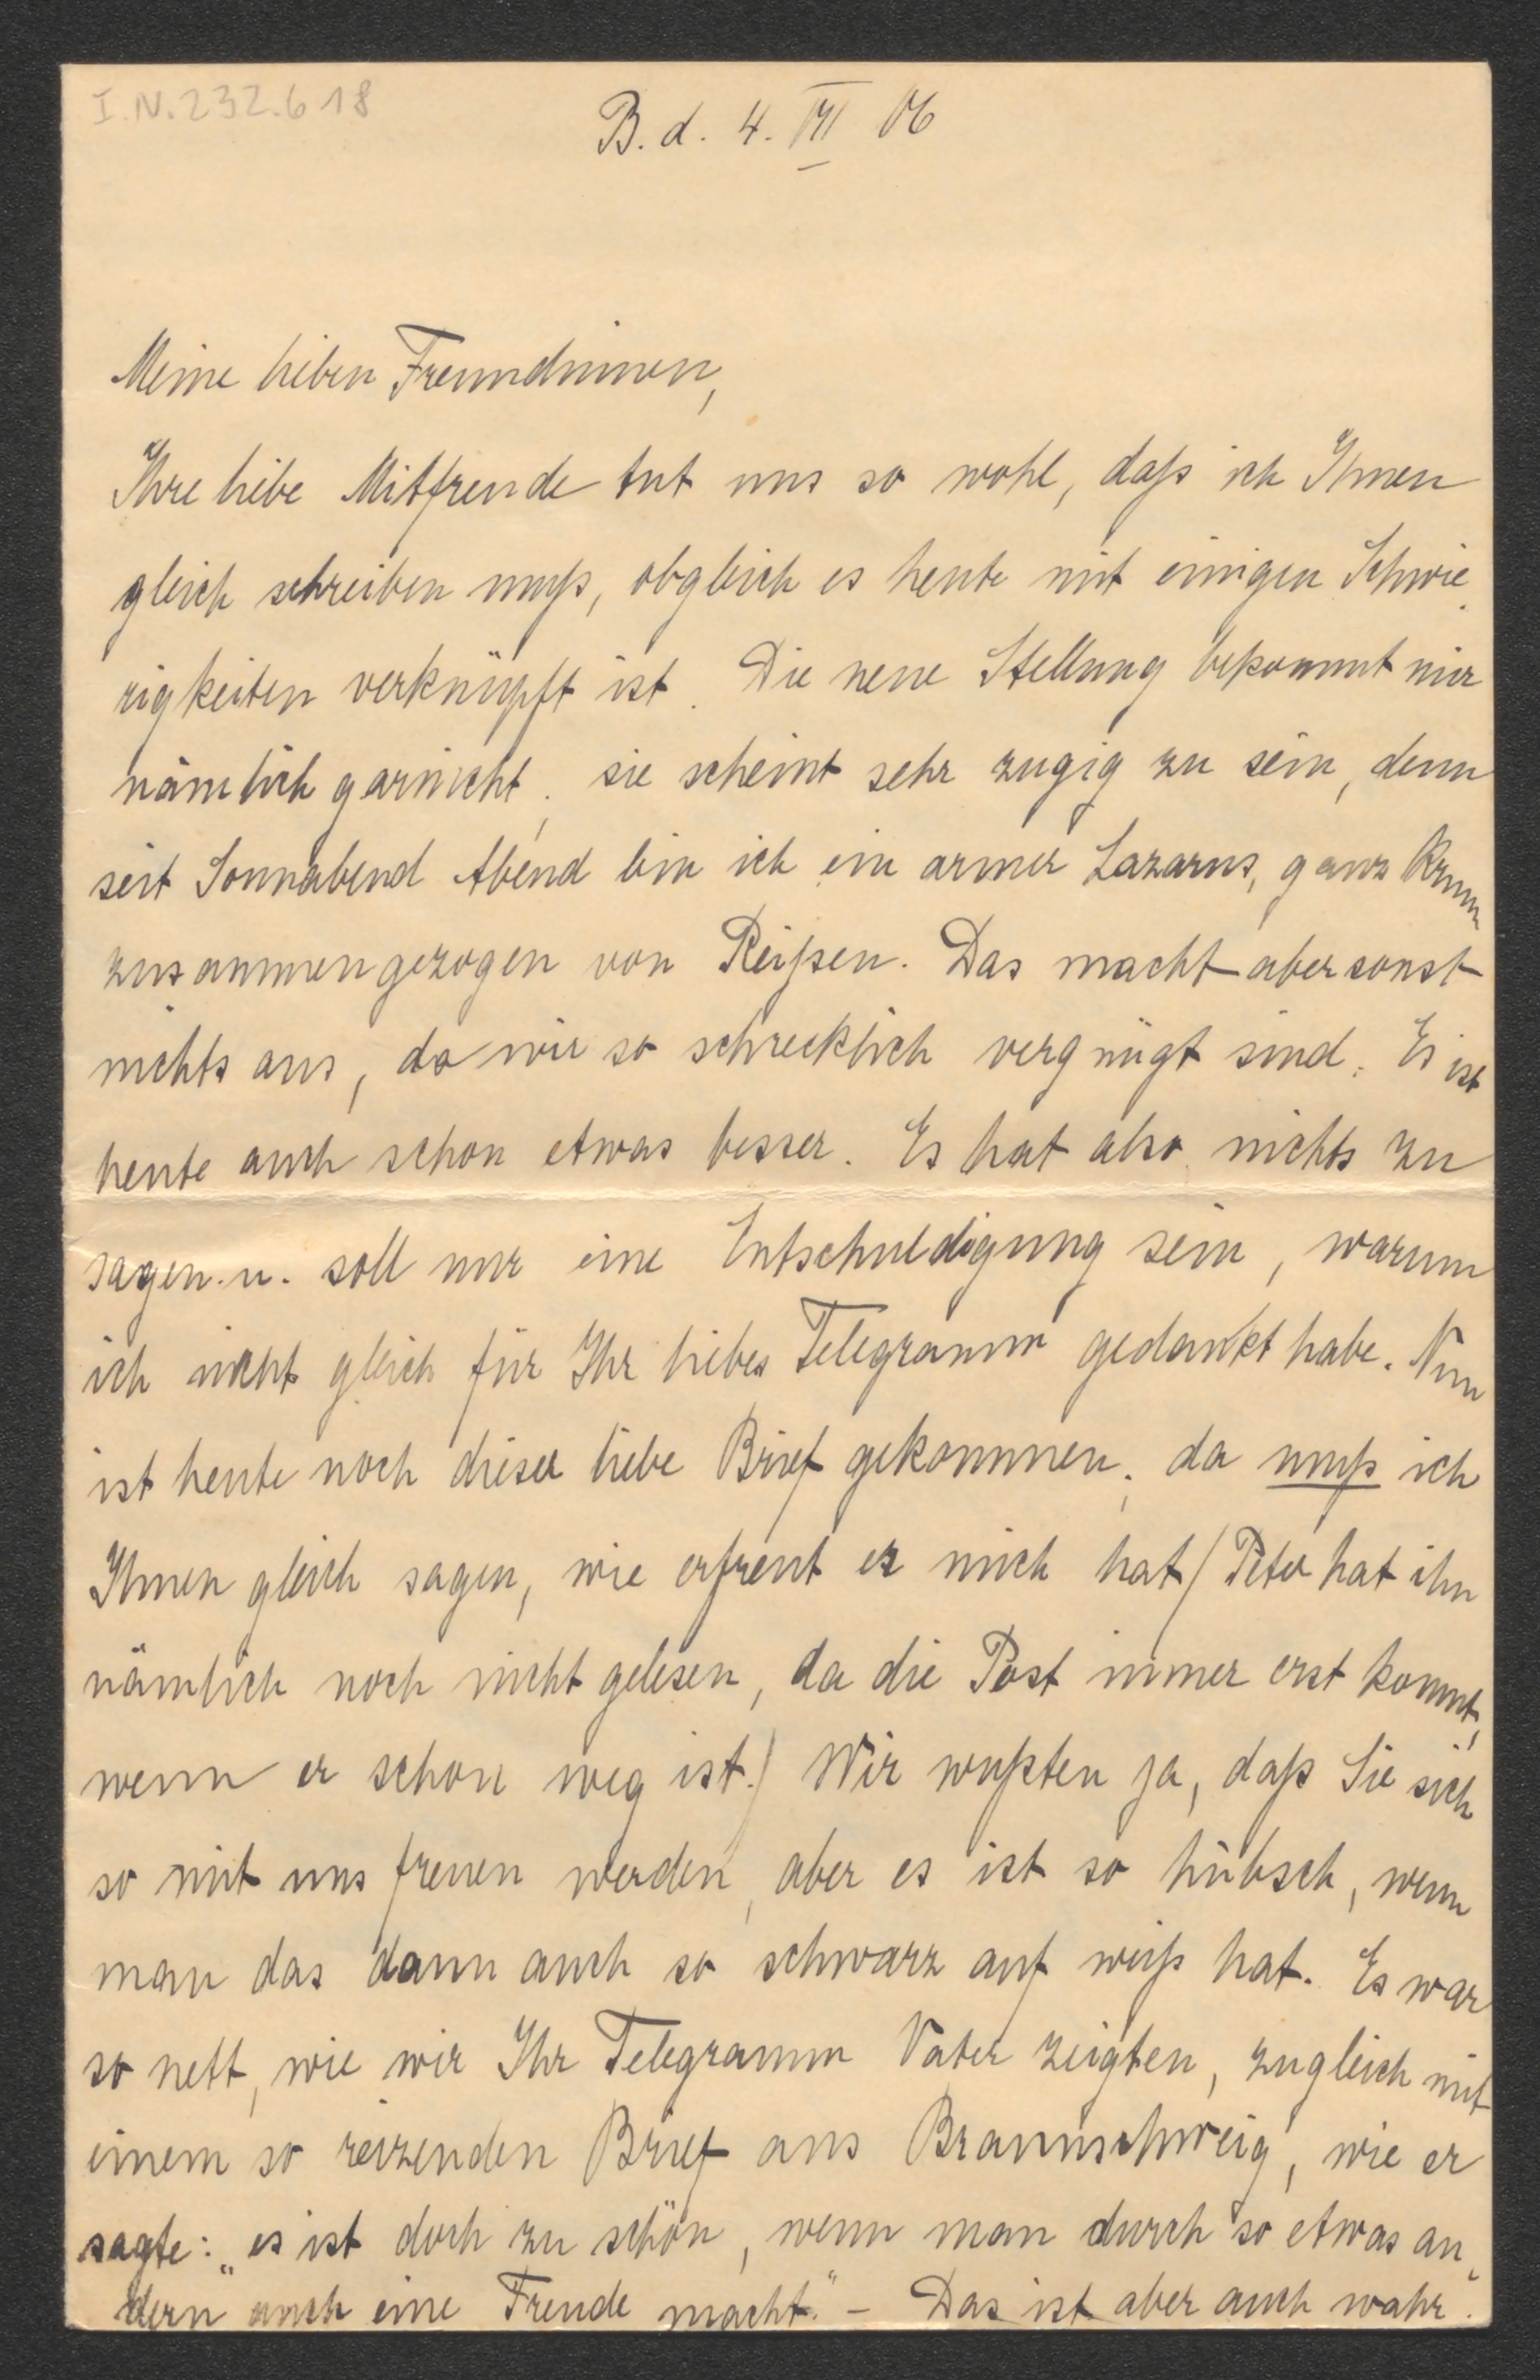 I.N. 232.618
B. d. 4. VII 06
Meine lieben Freundinnen,
Ihre liebe Mitfreude tut uns so wohl, daß ich Ihnen
gleich schreiben muß, obgleich es heute mit einigen Schwie
rigkeiten verknüpft ist. Die neue Stellung bekommt mir
nämlich garnicht; sie scheint sehr zugig zu sein, denn
seit Sonnabend Abend bin ich ein armer Lazarus, ganz krum
zusammengezogen von Reißen. Das macht aber sonst
nichts aus, da wir so schrecklich vergnügt sind. Es ist
heute auch schon etwas besser. Es hat also nichts zu
sagen u. soll nur eine Entschuldigung sein, warum
ich nicht gleich für Ihr liebes Telegramm gedankt habe. Nun
ist heute noch dieser liebe Brief gekommen; da muß ich
Ihnen gleich sagen, wie erfreut er mich hat (Peter hat ihn
nämlich noch nicht gelesen, da die Post immer erst kommt,
wenn er schon weg ist.) Wir wußten ja, daß Sie sich
so mit uns freuen werden, aber es ist so hübsch, wenn
man das dann auch so schwarz auf weiß hat. Es war
so nett, wie wir Ihr Telegramm Vater zeigten, zugleich mit
einem so reizenden Brief aus Braunschweig, wie er
sagte: „es ist doch zu schön, wenn man durch so etwas an
dern auch eine Freude macht." - Das ist aber auch wahr.